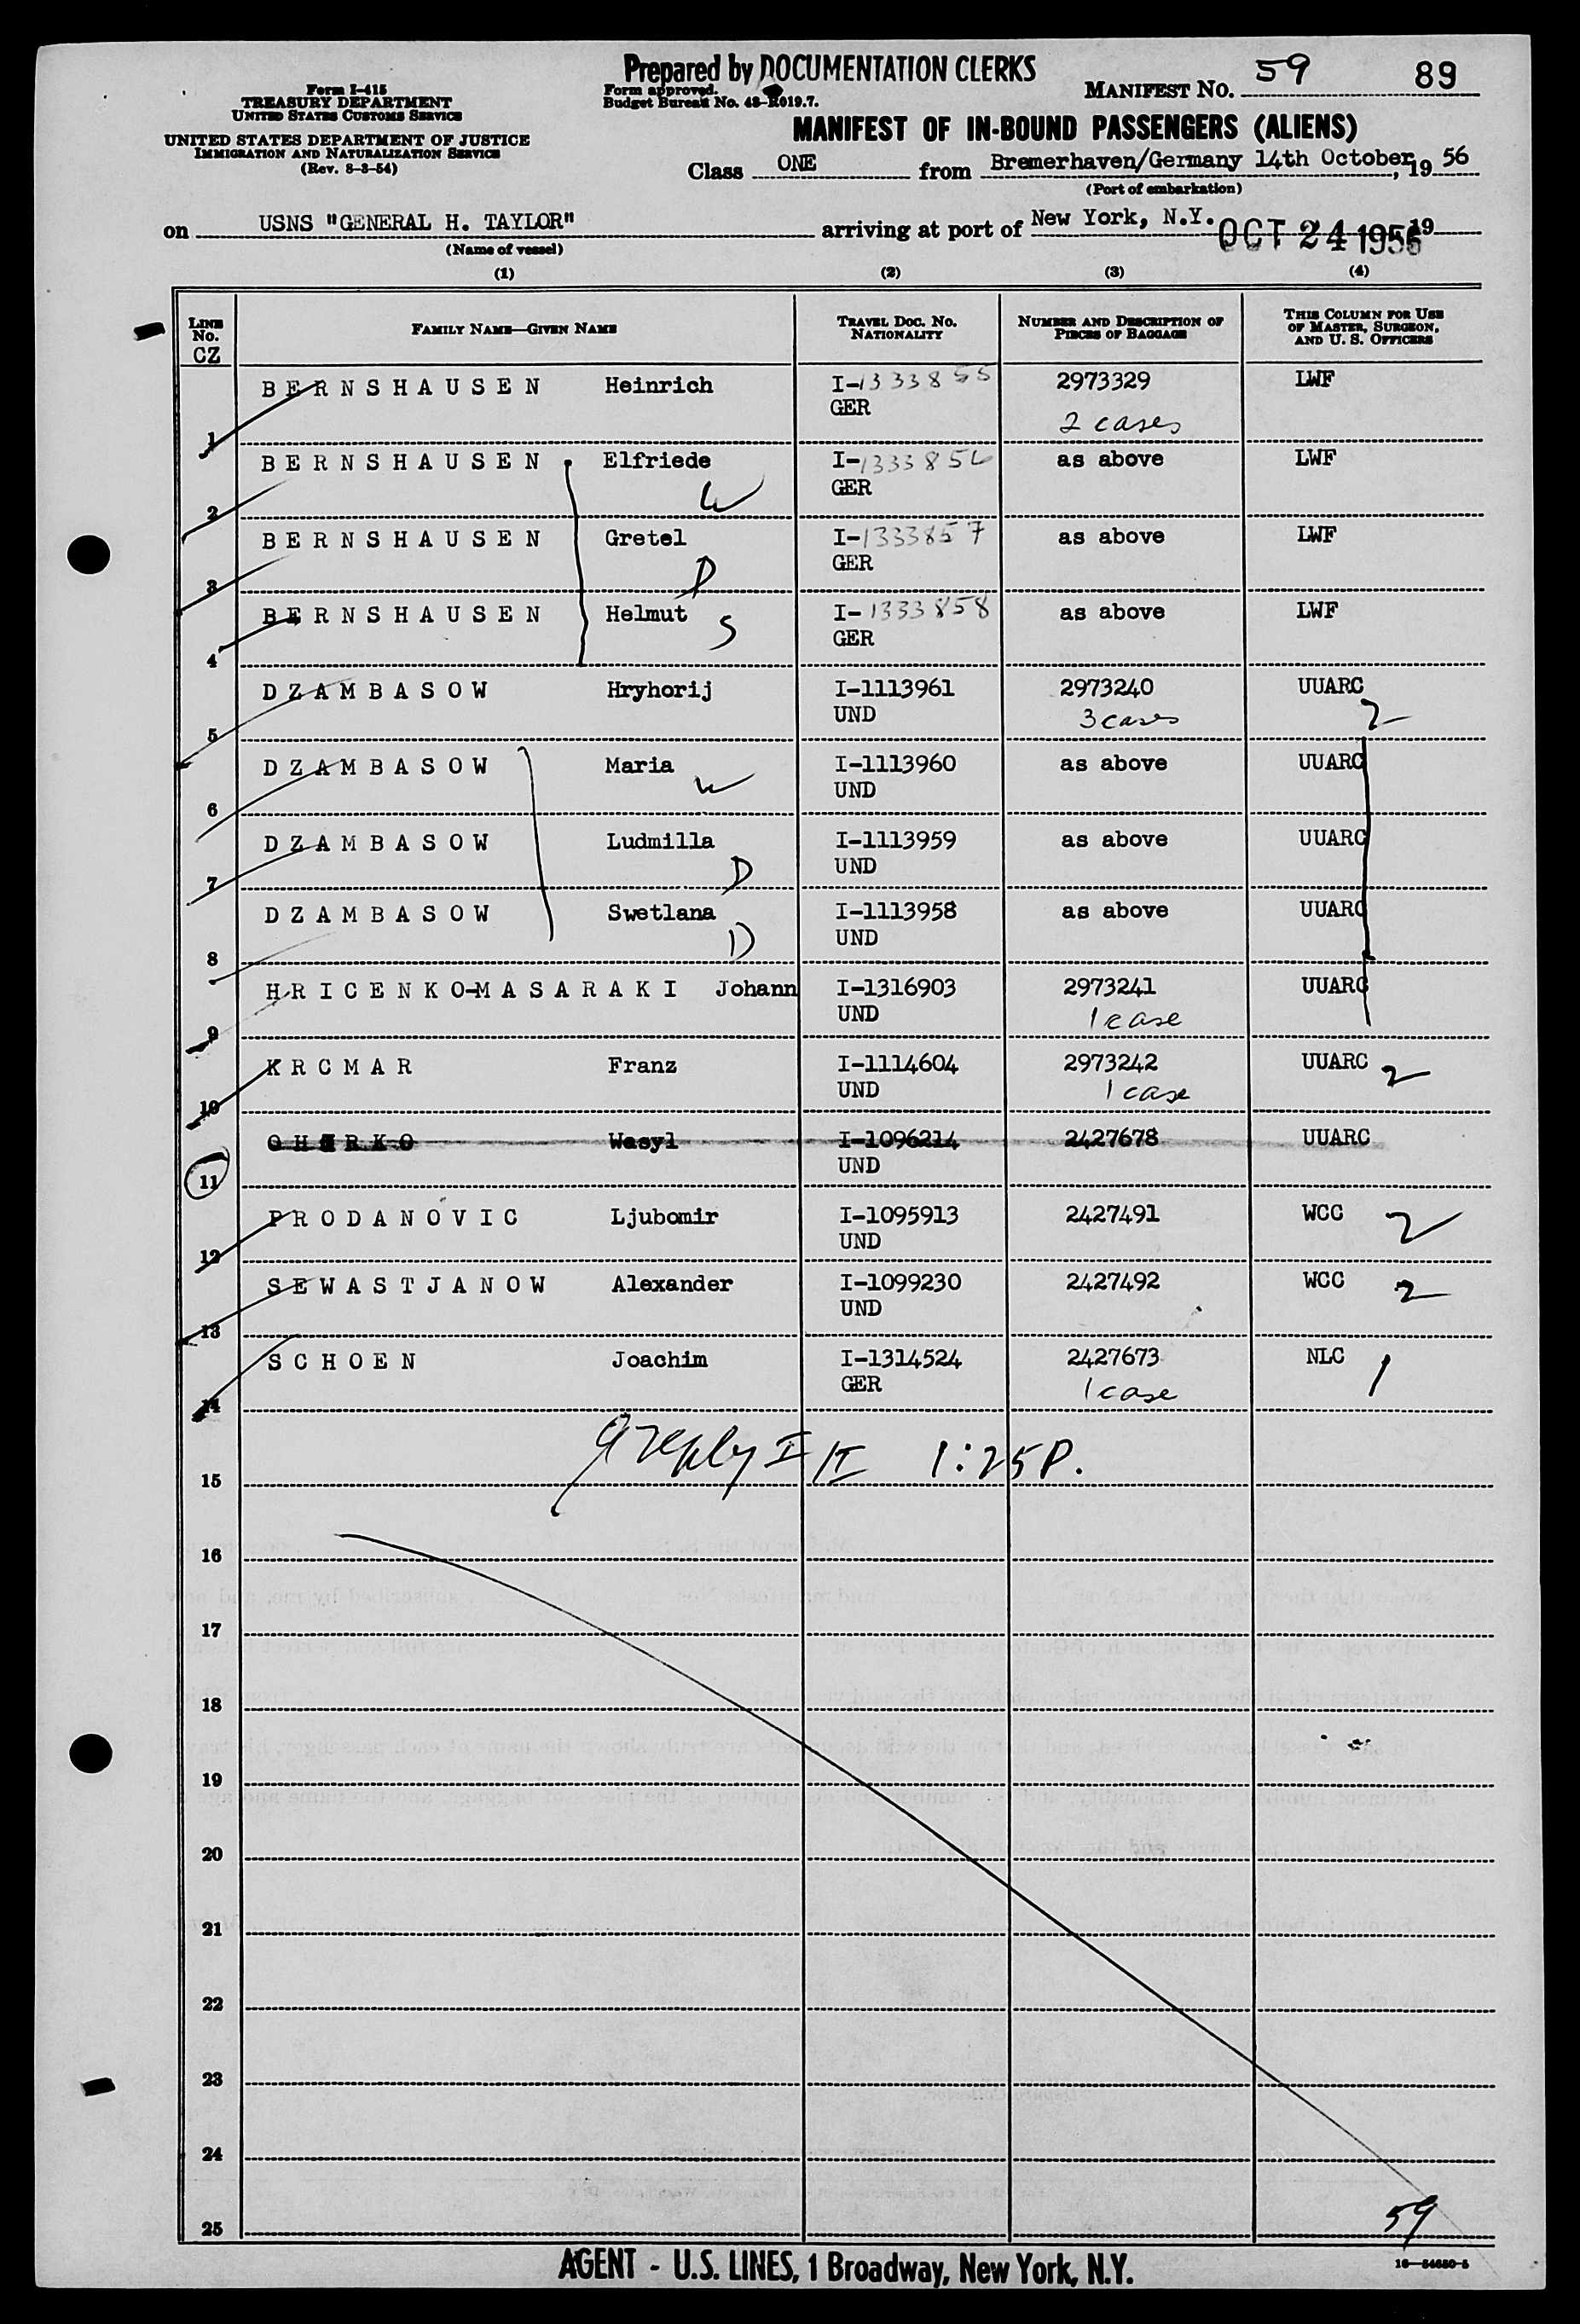 Prepared by DOCUMENTATION CLERKS
MANIFEST NO. 59 89
Form I-415
TREASURY DEPARTMENT
UNITED STATES CUSTOMS SERVICE
UNITED STATES DEPARTMENT OF JUSTICE
IMMIGRATION AND NATURALIZATION SERVICE
(Rev. 8-3-54)
Form approved.
Budget Bureau No. 43-R019.7.
MANIFEST OF IN-BOUND PASSENGERS (ALIENS)
Class ONE from Bremerhaven/Germany 14th October, 19 56
(Port of embarkation)
on USNS "GENERAL H. TAYLOR" arriving at port of New York, N.Y. OCT 24 1956 19
(Name of vessel)
(1) (2) (3) (4)
LINE No. FAMILY NAME—GIVEN NAME TRAVEL DOC. NO. NATIONALITY NUMBER AND DESCRIPTION OF PIECES OF BAGGAGE THIS COLUMN FOR USE OF MASTER, SURGEON, AND U. S. OFFICERS
CZ
1 BERNSHAUSEN Heinrich I-1333855 GER 2973329 2 cases LWF
2 BERNSHAUSEN Elfriede W I-1333856 GER as above LWF
3 BERNSHAUSEN Gretel D I-1333857 GER as above LWF
4 BERNSHAUSEN Helmut S I-1333858 GER as above LWF
5 DZAMBASOW Hryhorij I-1113961 UND 2973240 3 cases UUARC 2
6 DZAMBASOW Maria W I-1113960 UND as above UUARC
7 DZAMBASOW Ludmilla D I-1113959 UND as above UUARC
8 DZAMBASOW Swetlana D I-1113958 UND as above UUARC
9 HRICENKO-MASARAKI Johann I-1316903 UND 2973241 1 case UUARC
10 KRCMAR Franz I-1114604 UND 2973242 1 case UUARC 2
11 Wasyl I-1096214 UND 2427678 UUARC
12 PRODANOVIC Ljubomir I-1095913 UND 2427491 WCC 2
13 SEWASTJANOW Alexander I-1099230 UND 2427492 WCC 2
14 SCHOEN Joachim I-1314524 GER 2427673 1 case NLC 1
15 1:25P.
16
17
18
19
20
21
22
23
24
25
59
AGENT - U.S. LINES, 1 Broadway, New York, N.Y.
16—54650-5